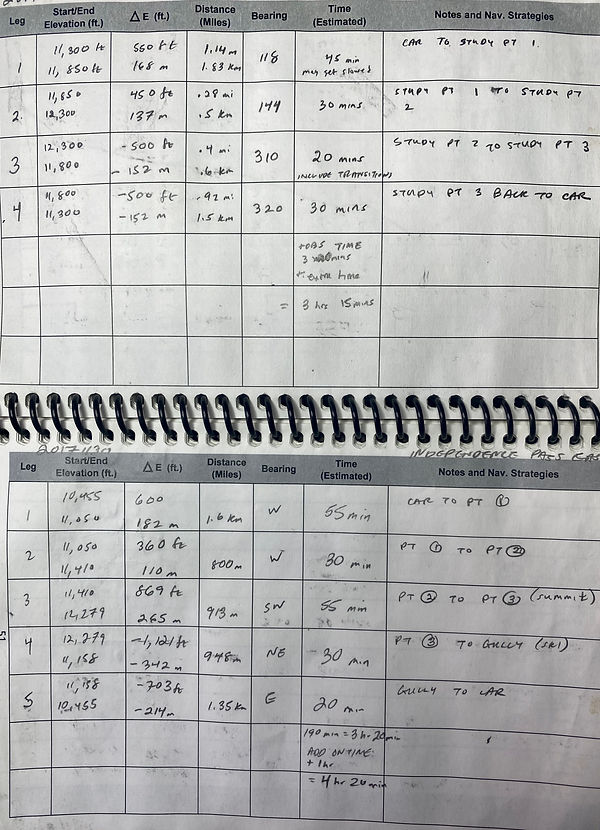 Leg Start/End Elevation (ft.) Δ E (ft.) Distance (Miles) Bearing Time (Estimated) Notes and Nav. Strategies
1 11,300 ft 550 ft 1.14 m 118 45 min CAR TO STUDY PT 1.
11,850 ft 168 m 1.83 km may get slowed
2. 11,850 450 ft .28 mi 144 30 mins STUDY PT 1 TO STUDY PT
12,300 137 m .5 km 2
3 12,300 -500 ft .4 mi 310 20 mins STUDY PT 2 TO STUDY PT 3
11,800 -152 m .6 km INCLUDE TRANSITIONS
4 11,800 -500 ft .92 mi 320 30 mins STUDY PT 3 BACK TO CAR
11,300 -152 m 1.5 km
+OBS TIME
3 mins
+ extra time
= 3 hrs 15 mins
INDEPENDENCE PASS
Leg Start/End Elevation (ft.) Δ E (ft.) Distance (Miles) Bearing Time (Estimated) Notes and Nav. Strategies
1 10,455 600 1.6 km W 55 min CAR TO PT ①
11,050 182 m
2 11,050 360 ft 800m W 30 min PT ① TO PT ②
11,410 110 m
3 11,410 869 ft 913 m SW 55 min PT ② TO PT ③ (summit)
12,279 265 m
4 12,279 -1,121 ft 948 m NE 30 min PT ③ TO GULLY (SKI)
11,158 -342 m
5 11,158 -703 ft 1.35 km E 20 min GULLY TO CAR
10,455 -214 m
190 min = 3 hr 20 min
ADD ON TIME:
+ 1hr
= 4 hr 20 min
51